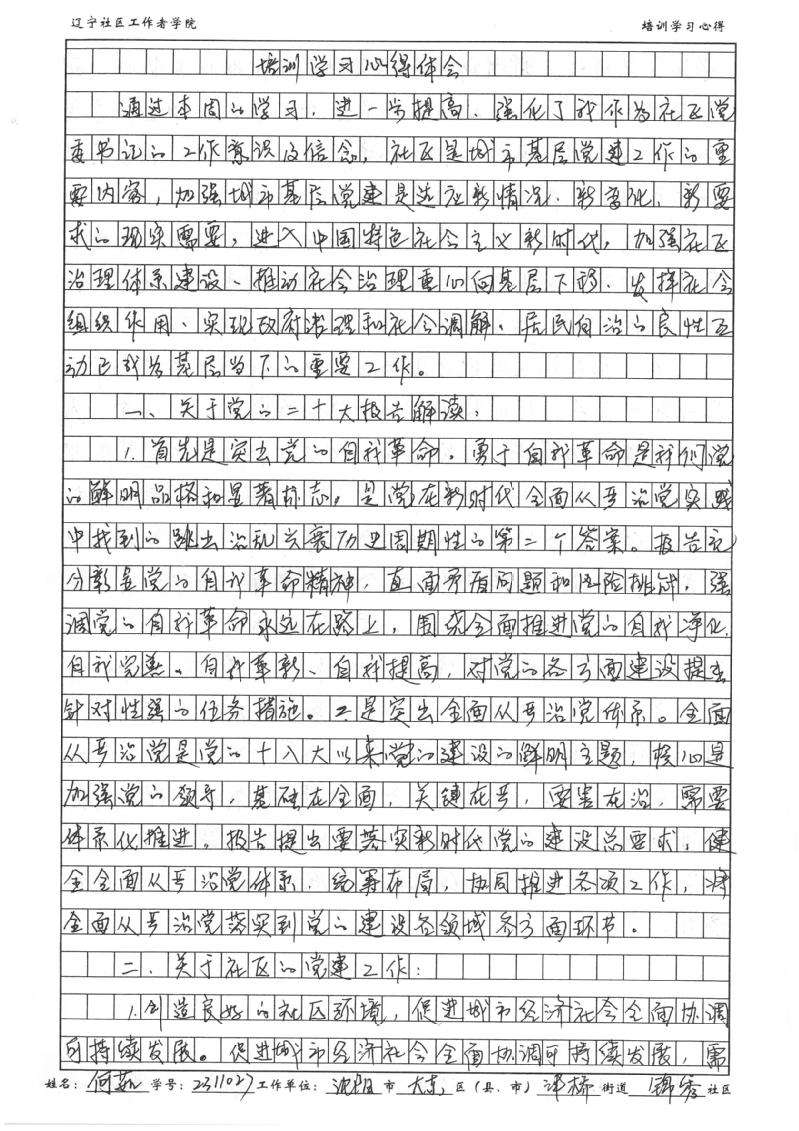 辽宁社区工作者学院 培训学习心得
培训学习心得体会
通过本周的学习，进一步提高、强化了我作为社区党
委书记的工作意识及信念，社区是城市基层党建工作的重
要内容，加强城市基层党建是适应新情况、新变化、新要
求的现实需要，进入中国特色社会主义新时代，加强社区
治理体系建设、推动社会治理重心向基层下移、发挥社会
组织作用、实现政府治理和社会调解、居民自治的良性互
动已成为基层当下的重要工作。
一、关于党的二十大报告解读：
1.首先是突出党的自我革命。勇于自我革命是我们党
的鲜明品格和显著标志。是党在新时代全面从严治党实践
中找到的跳出治乱兴衰历史周期性的第二个答案。报告充
分彰显党的自我革命精神，直面矛盾问题和风险挑战，强
调党的自我革命永远在路上，围绕全面推进党的自我净化、
自我完善、自我革新、自我提高，对党的各方面建设提出
针对性强的任务措施。二是突出全面从严治党体系。全面
从严治党是党的十八大以来党的建设的鲜明主题，核心是
加强党的领导，基础在全面，关键在严，要害在治，需要
体系化推进。报告提出要落实新时代党的建设总要求，健
全全面从严治党体系，统筹布局，协同推进各项工作，将
全面从严治党落实到党的建设各领域各方面环节。
二、关于社区的党建工作：
1.创造良好的社区环境，促进城市经济社会全面协调
可持续发展。促进城市经济社会全面协调可持续发展，需
姓名：何茹 学号：2311027 工作单位：沈阳市 大东区（县、市）津桥街道 锦秀社区